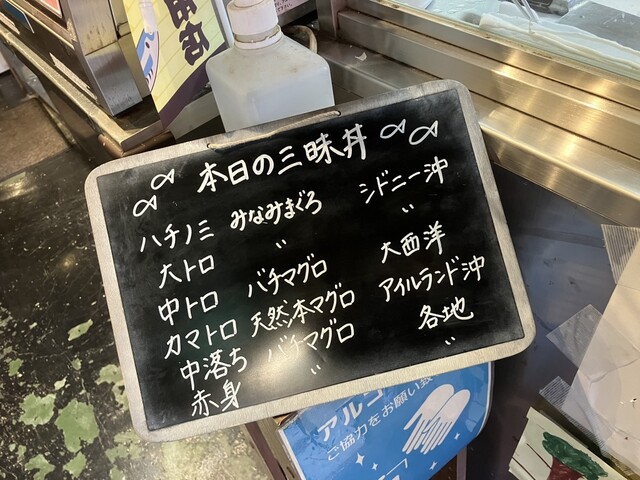 本日の三昧丼
ハチノミ みなみまぐろ シドニー沖
大トロ 〃 〃
中トロ バチマグロ 大西洋
カマトロ 天然本マグロ アイルランド沖
中落ち バチマグロ 各地
赤身 〃 〃
アルコ
ご協力をお願い致
店